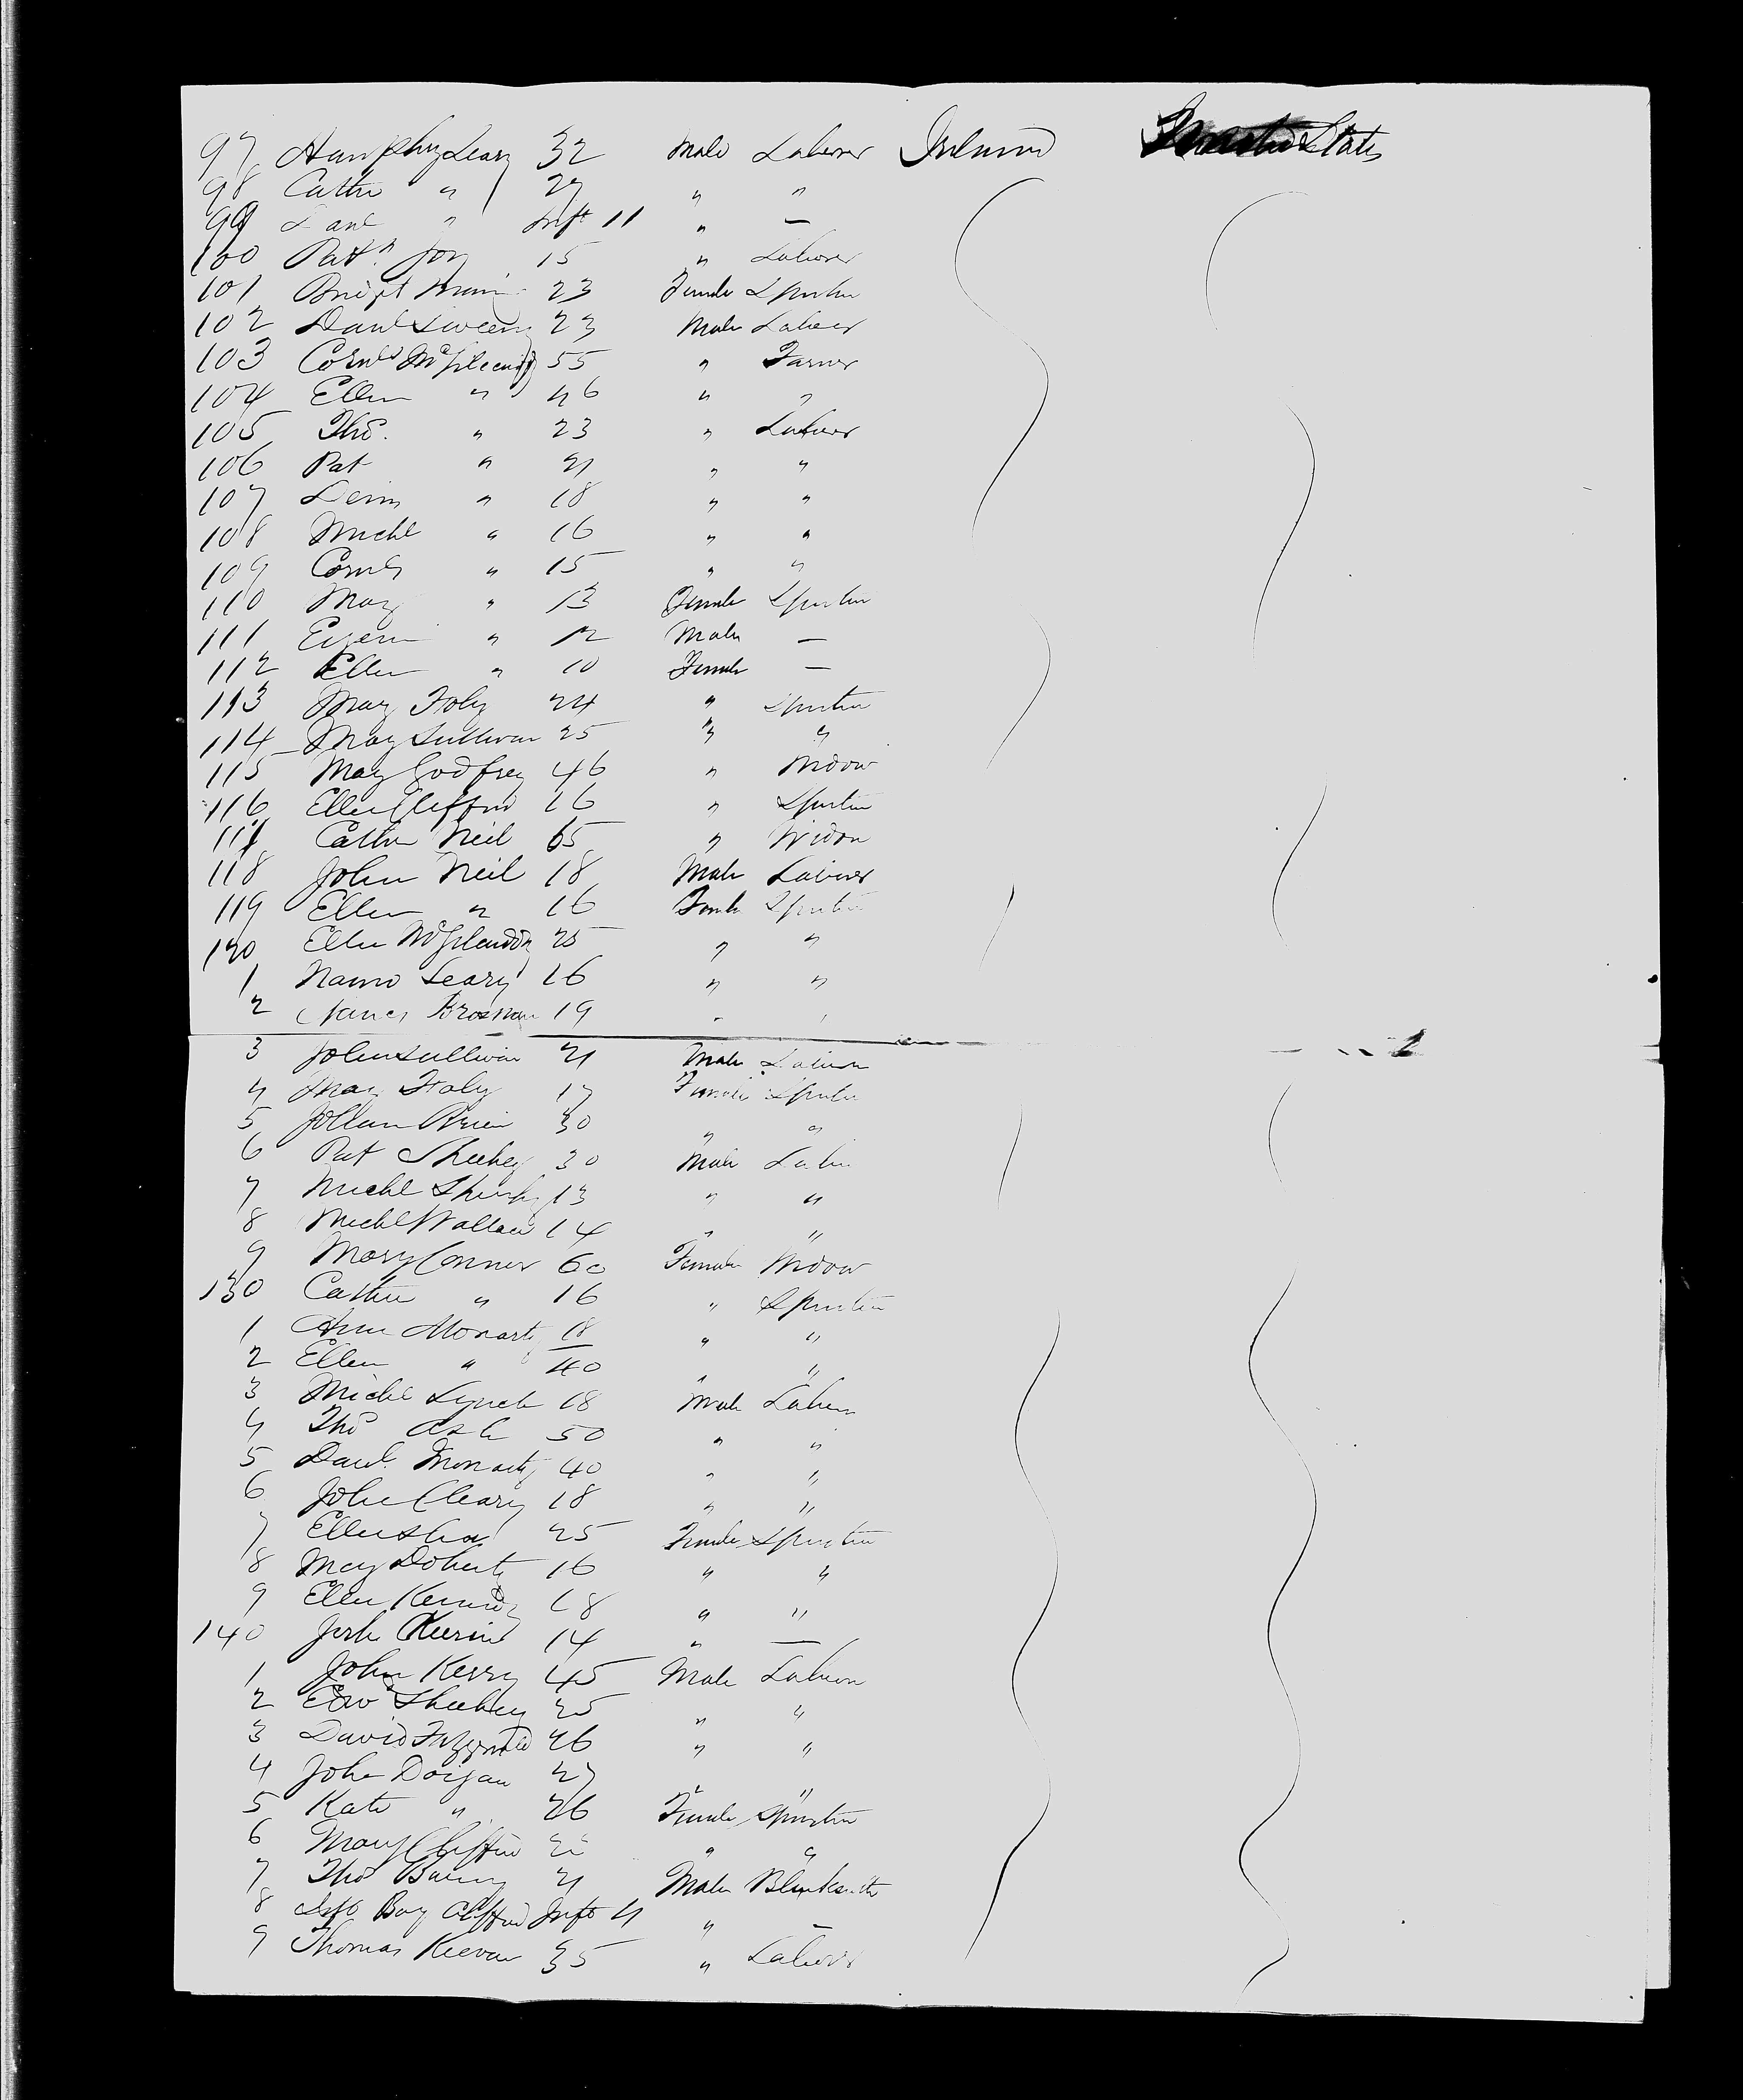 97 Humphry Leary 32 Male Laborer Ireland States
98 Cathe " 27 " "
99 Danl " Inft 11 " —
100 Patk Joy 15 " Laborer
101 Bridgt 23 Female Spinster
102 Danl Sweeny 23 Male Laborer
103 Cornls 55 " Farmer
104 Ellen " 46 " "
105 Thos. " 23 " Laborer
106 Pat " 21 " "
107 Denis " 18 " "
108 Michl " 16 " "
109 Cornls " 15 " "
110 Mary " 13 Female Spinster
111 Eugene " 12 Male —
112 Ellen " 10 Female —
113 Mary Foley 24 " Spinster
114 Mary Sullivan 25 " "
115 Mary Godfrey 46 " Widow
116 Ellen Clifford 16 " Spinster
117 Cathe Neil 65 " Widow
118 John Neil 18 Male Laborer
119 Ellen " 16 Female Spinster
120 Ellen 25 " "
1 Leary 16 " "
2 Brosnan 19 " "
3 John Sullivan 21 Male Laborer
4 Mary Foley 17 Female Spinster
5 Brien 30 " "
6 Pat Sheehey 30 Male Labr
7 Michl Sheehy 13 " "
8 Michl Wallace 14 " "
9 Mary Conner 60 Female Widow
130 Cathe " 16 " Spinster
1 Ann Moriarty 18 " "
2 Ellen " 40 " "
3 Michl Lynch 18 Male Laborer
4 Thos Ash 50 " "
5 Danl. Moriarty 40 " "
6 John Cleary 18 " "
7 Ellen Shea 25 Female Spinster
8 Mary Doherty 16 " "
9 Ellen Kennedy 18 " "
140 14 " —
1 John Kerry 45 Male Laborer
2 Edwd Sheehey 25 " "
3 David Fitzgerald 26 " "
4 John Dorgan 27 " "
5 Kate " 26 Female Spinster
6 Mary Clifford " "
7 Thos 21 Male Blacksmith
8 Boy Clifford Inft " —
9 Thomas Keevan 35 " Laborer